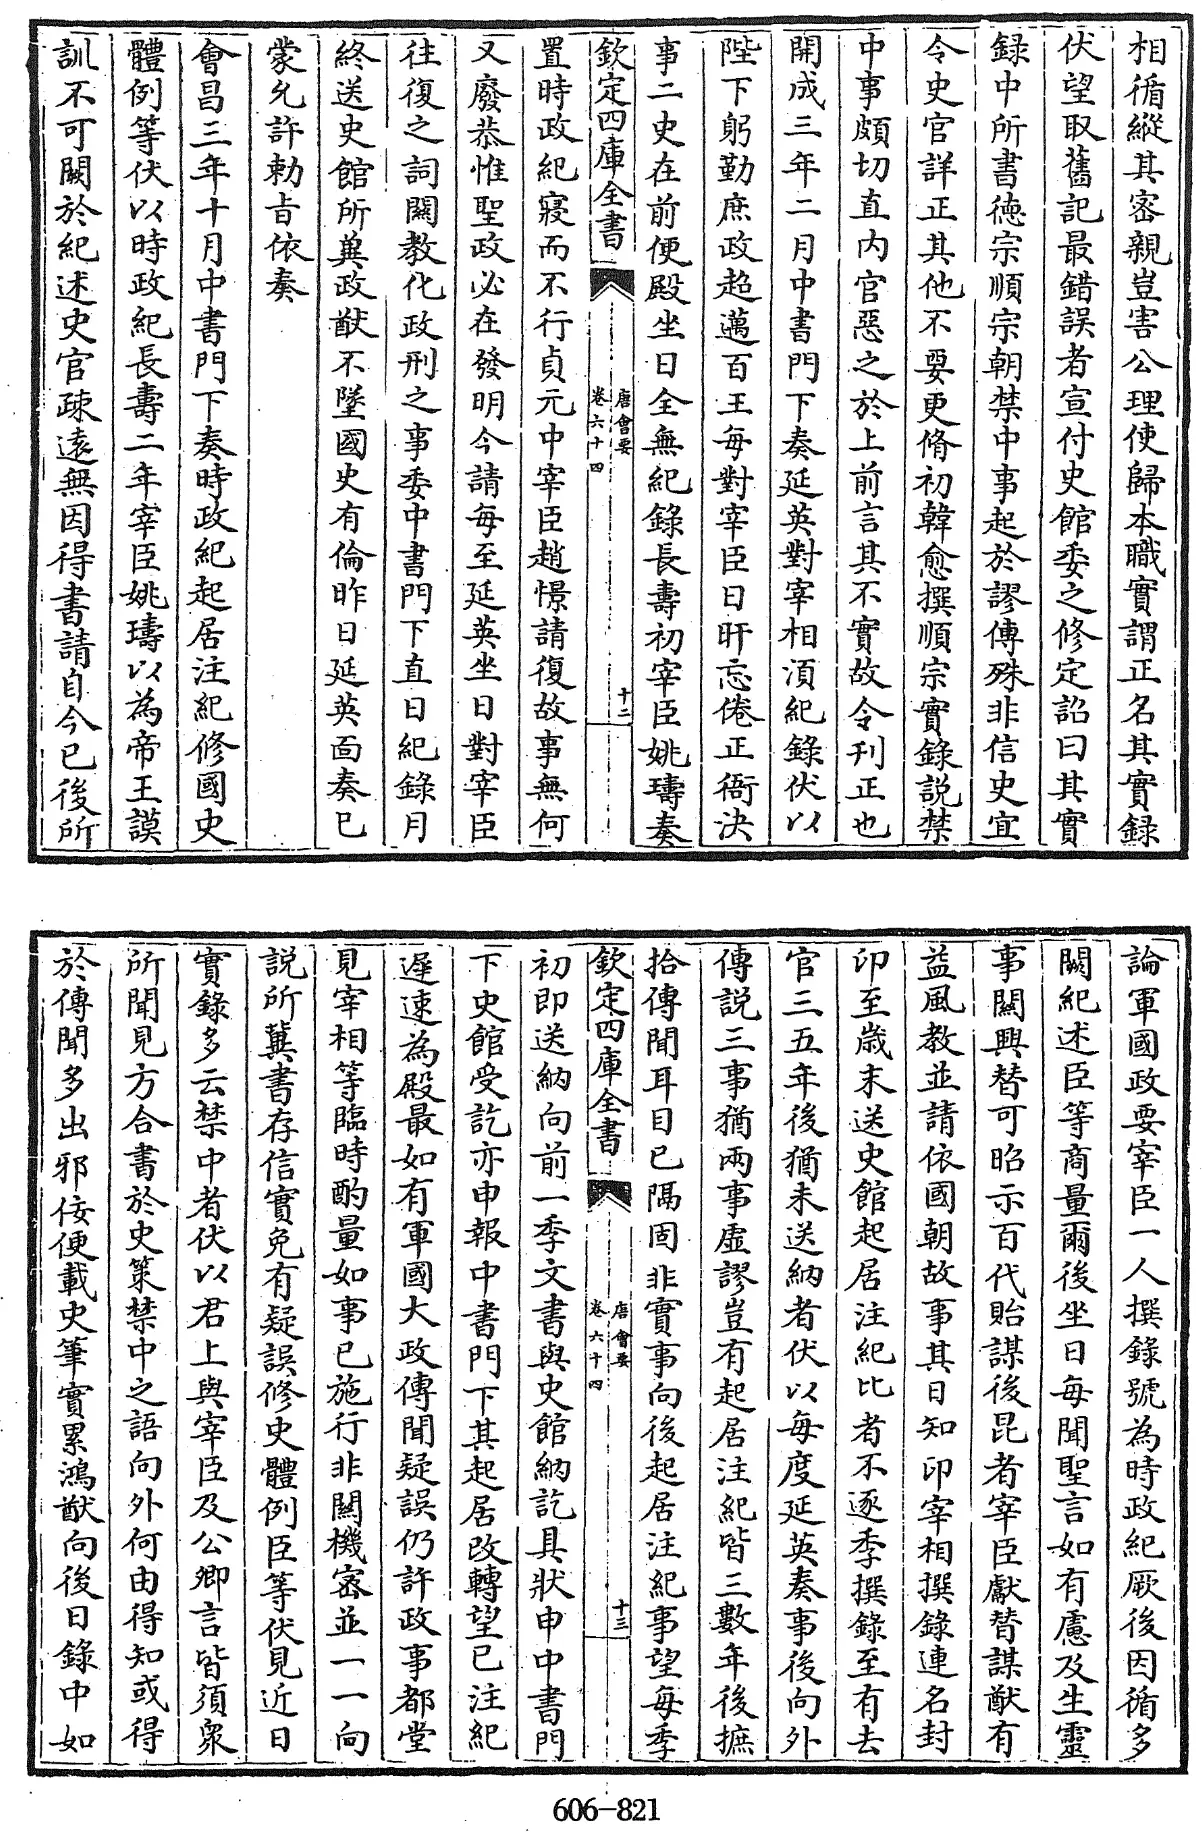 相循縱其密親豈害公理使歸本職實謂正名其實録
伏望取舊記最錯誤者宣付史館委之修定詔曰其實
録中所書德宗順宗朝禁中事起於謬傳殊非信史宜
令史官詳正其他不要更脩初韓愈撰順宗實錄説禁
中事頗切直内官惡之於上前言其不實故令刋正也
開成三年二月中書門下奏延英對宰相須紀錄伏以
陛下躬勤庶政超邁百王每對宰臣日旰忘倦正衙決
事二史在前便殿坐日全無紀錄長壽初宰臣姚璹奏
欽定四庫全書
唐會要
卷六十四
十二
置時政紀寢而不行貞元中宰臣趙憬請復故事無何
又廢恭惟聖政必在發明今請每至延英坐日對宰臣
往復之詞關教化政刑之事委中書門下直日紀錄月
終送史館所冀政猷不墜國史有倫昨日延英面奏已
蒙允許勅㫖依奏
會昌三年十月中書門下奏時政紀起居注紀修國史
體例等伏以時政紀長壽二年宰臣姚璹以為帝王謨
訓不可闕於紀述史官疎遠無因得書請自今已後所
論軍國政要宰臣一人撰錄號為時政紀厥後因循多
闕紀述臣等商量爾後坐日每聞聖言如有慮及生靈
事關興替可昭示百代貽謀後昆者宰臣獻替謀猷有
益風教並請依國朝故事其日知印宰相撰錄連名封
印至歳末送史館起居注紀比者不逐季撰錄至有去
官三五年後猶未送納者伏以每度延英奏事後向外
傳説三事猶兩事虛謬豈有起居注紀皆三數年後摭
拾傳聞耳目已隔固非實事向後起居注紀事望每季
欽定四庫全書
唐會要
卷六十四
十三
初即送納向前一季文書與史館納訖具狀申中書門
下史館受訖亦申報中書門下其起居改轉望已注紀
遲速為殿最如有軍國大政傳聞疑誤仍許政事都堂
見宰相等臨時酌量如事已施行非關機密並一一向
説所冀書存信實免有疑誤修史體例臣等伏見近日
實錄多云禁中者伏以君上與宰臣及公卿言皆須衆
所聞見方合書於史策禁中之語向外何由得知或得
於傳聞多出邪佞便載史筆實累鴻猷向後日錄中如
606-821